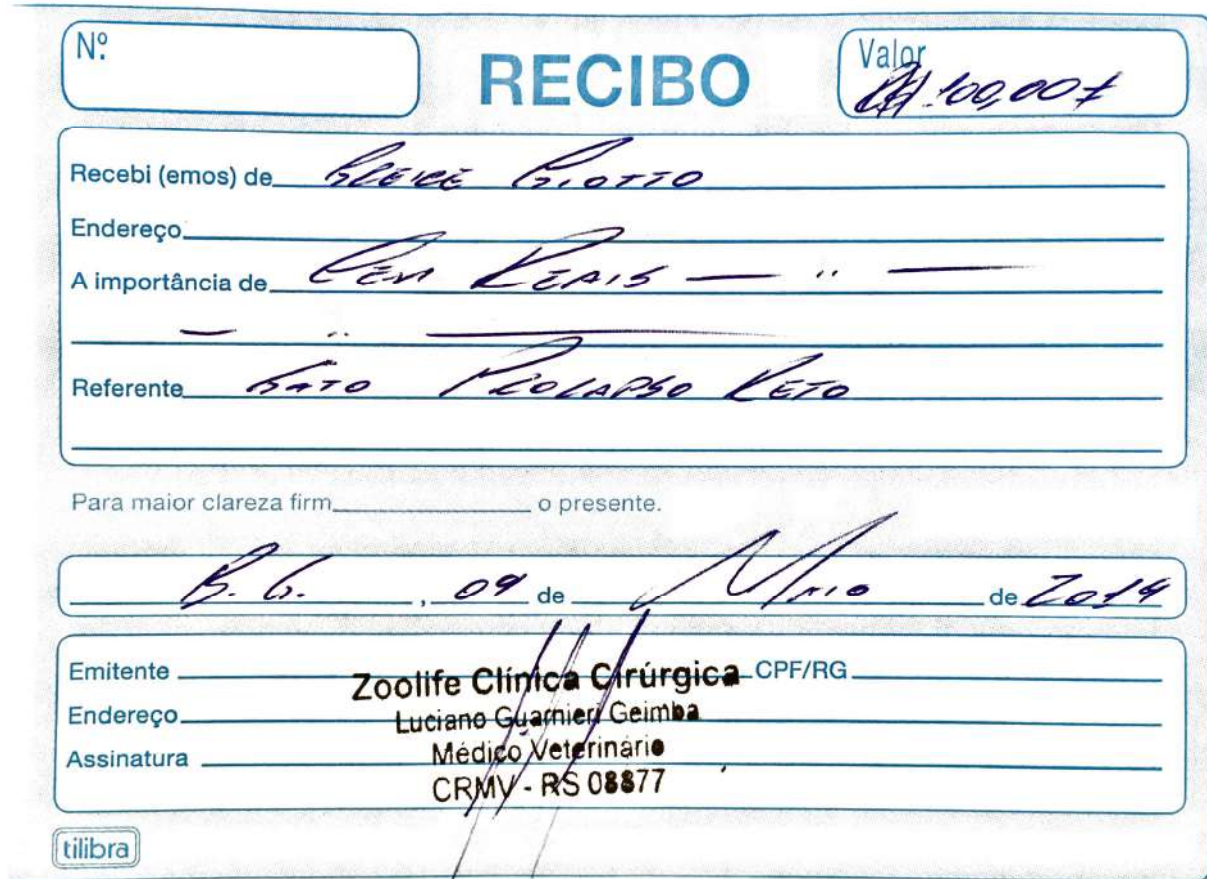 Nº
RECIBO
Valor
R$ 100,00
Recebi (emos) de Greice Giotto
Endereço
A importância de Cem Reais — " —
— " —
Referente Gato Prolapso Reto
Para maior clareza firm o presente.
B. G. , 09 de Maio de 2019
Emitente Zoolife Clínica Cirúrgica CPF/RG
Endereço Luciano Guarnieri Geimba
Assinatura Médico Veterinário
CRMV - RS 08877
tilibra